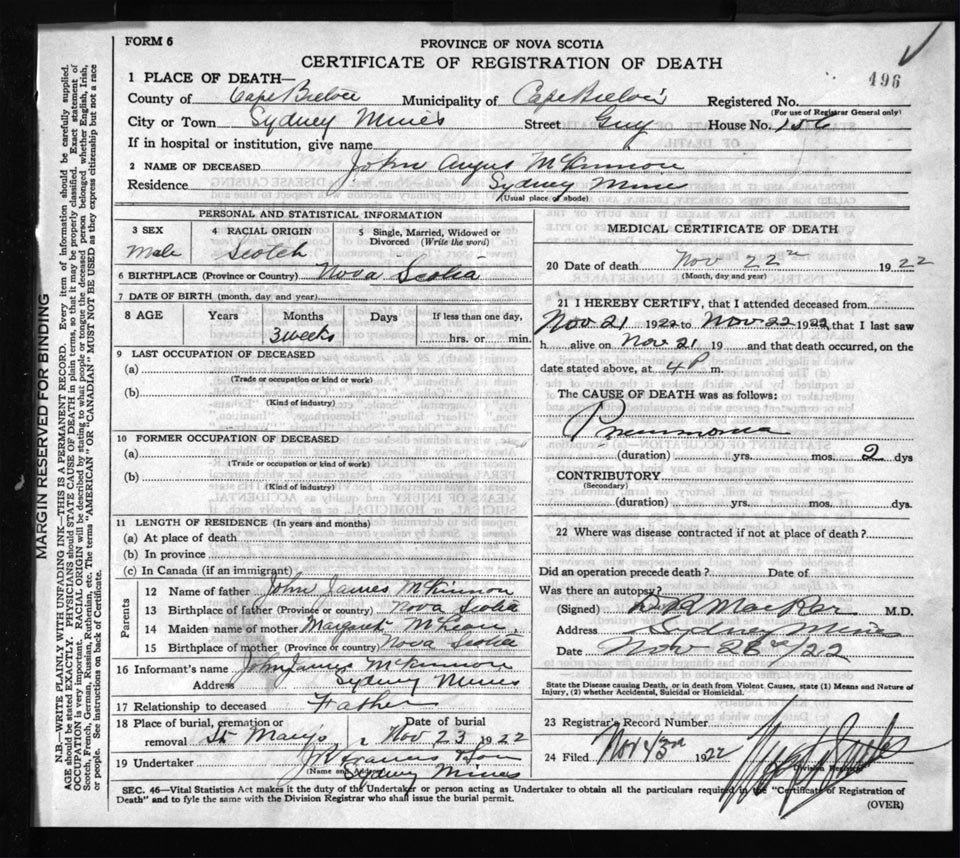 FORM 6
PROVINCE OF NOVA SCOTIA
CERTIFICATE OF REGISTRATION OF DEATH
496
1 PLACE OF DEATH—
County of Cape Breton Municipality of Cape Breton Registered No.
(For use of Registrar General only)
City or Town Sydney Mines Street Guy House No. 156
If in hospital or institution, give name
2 NAME OF DECEASED John Angus McKinnon
Residence Sydney Mines
(Usual place of abode)
PERSONAL AND STATISTICAL INFORMATION
3 SEX 4 RACIAL ORIGIN 5 Single, Married, Widowed or Divorced (Write the word)
Male Scotch
6 BIRTHPLACE (Province or Country) Nova Scotia
7 DATE OF BIRTH (month, day and year)
8 AGE Years Months Days If less than one day,
3 weeks hrs. or min.
9 LAST OCCUPATION OF DECEASED
(a)
(Trade or occupation or kind or work)
(b)
(Kind of industry)
10 FORMER OCCUPATION OF DECEASED
(a)
(Trade or occupation or kind of work)
(b)
(Kind of industry)
11 LENGTH OF RESIDENCE (In years and months)
(a) At place of death
(b) In province
(c) In Canada (if an immigrant)
Parents
12 Name of father John James McKinnon
13 Birthplace of father (Province or country) Nova Scotia
14 Maiden name of mother Margaret McLean
15 Birthplace of mother (Province or country) Nova Scotia
16 Informant's name John James McKinnon
Address Sydney Mines
17 Relationship to deceased Father
18 Place of burial, cremation or Date of burial
removal St Marys Nov 23 1922
19 Undertaker
(Name and Address) Sydney Mines
MEDICAL CERTIFICATE OF DEATH
20 Date of death Nov 22nd 1922
(Month, day and year)
21 I HEREBY CERTIFY, that I attended deceased from
Nov 21 1922 to Nov 22 1922, that I last saw
h alive on Nov 21 19 and that death occurred, on the
date stated above, at 4 P m.
The CAUSE OF DEATH was as follows:
Pneumonia
(duration) yrs. mos. 2 dys
CONTRIBUTORY
(Secondary)
(duration) yrs. mos. dys.
22 Where was disease contracted if not at place of death?
Did an operation precede death? Date of
Was there an autopsy?
(Signed) M.D.
Address Sydney Mines
Date Nov /22
State the Disease causing Death, or in death from Violent Causes, state (1) Means and Nature of
Injury, (2) whether Accidental, Suicidal or Homicidal.
23 Registrar's Record Number
24 Filed Nov 1922
Division Registrar
SEC. 46—Vital Statistics Act makes it the duty of the Undertaker or person acting as Undertaker to obtain all the particulars required in the "Certificate of Registration of
Death" and to fyle the same with the Division Registrar who shall issue the burial permit.
(OVER)
MARGIN RESERVED FOR BINDING
N.B.—WRITE PLAINLY WITH UNFADING INK—THIS IS A PERMANENT RECORD. Every item of information should be carefully supplied.
AGE should be stated EXACTLY. PHYSICIANS should STATE CAUSE OF DEATH in plain terms, so that it may be properly classified. Exact statement of
OCCUPATION is very important. RACIAL ORIGIN will be described by stating to what people or tongue the deceased person belonged whether English, Irish,
Scotch, French, German, Russian, Ruthenian, etc. The terms "AMERICAN" OR "CANADIAN" MUST NOT BE USED as they express citizenship but not a race
or people. See instructions on back of Certificate.